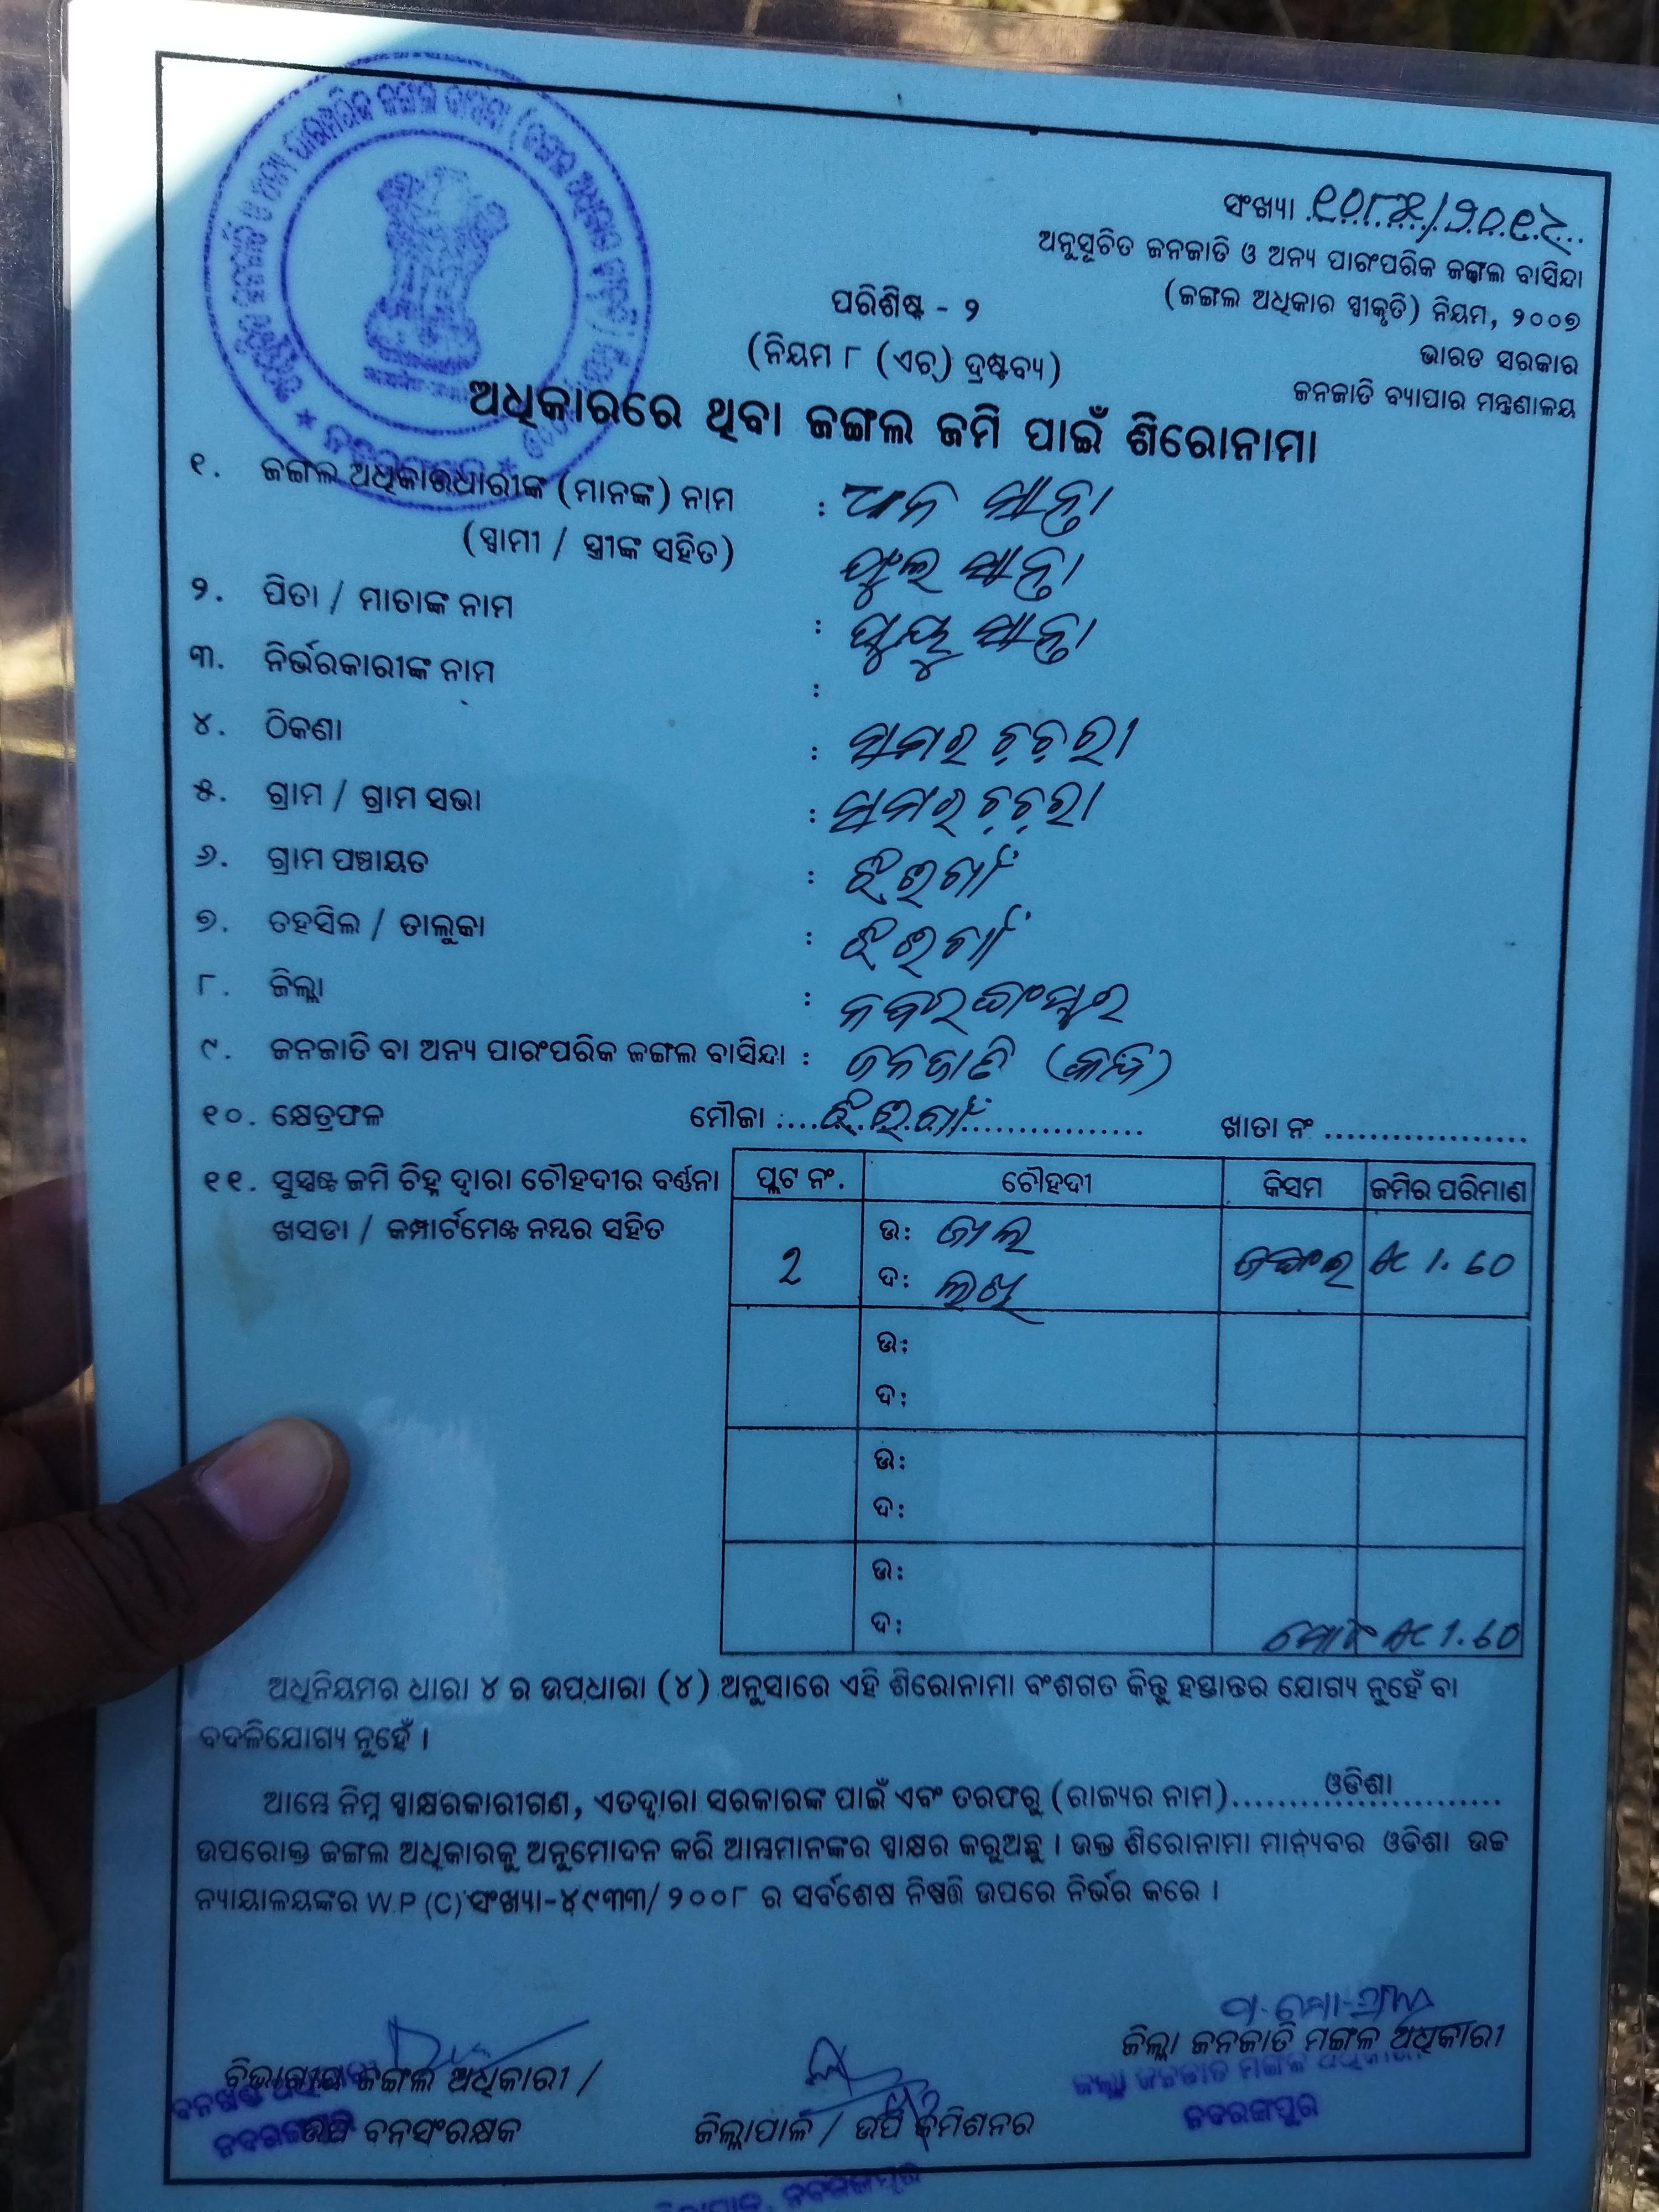 ସଂଖ୍ୟା
ଅନୁସୂଚିତ ଜନଜାତି ଓ ଅନ୍ୟ ପାରଂପରିକ ଜଙ୍ଗଲ ବାସିନ୍ଦା
(ଜଙ୍ଗଲ ଅଧିକାର ସ୍ୱୀକୃତି) ନିୟମ, ୨୦୦୭
ଭାରତ ସରକାର
ଜନଜାତି ବ୍ୟାପାର ମନ୍ତ୍ରଣାଳୟ
ପରିଶିଷ୍ଟ - ୨
(ନିୟମ ୮ (ଏଚ୍) ଦ୍ରଷ୍ଟବ୍ୟ)
ଅଧିକାରରେ ଥିବା ଜଙ୍ଗଲ ଜମି ପାଇଁ ଶିରୋନାମା
୧. ଜଙ୍ଗଲ ଅଧିକାରଧାରୀଙ୍କ (ମାନଙ୍କ) ନାମ :
(ସ୍ୱାମୀ / ସ୍ତ୍ରୀଙ୍କ ସହିତ)
୨. ପିତା / ମାତାଙ୍କ ନାମ :
୩. ନିର୍ଭରକାରୀଙ୍କ ନାମ :
୪. ଠିକଣା :
୫. ଗ୍ରାମ / ଗ୍ରାମ ସଭା :
୬. ଗ୍ରାମ ପଞ୍ଚାୟତ : ଝରିଗାଁ
୭. ତହସିଲ / ତାଲୁକା : ଝରିଗାଁ
୮. ଜିଲ୍ଲା : ନବରଙ୍ଗପୁର
୯. ଜନଜାତି ବା ଅନ୍ୟ ପାରଂପରିକ ଜଙ୍ଗଲ ବାସିନ୍ଦା : ଜନଜାତି
୧୦. କ୍ଷେତ୍ରଫଳ ମୌଜା : ଝରିଗାଁ ଖାତା ନଂ
୧୧. ସୁସ୍ପଷ୍ଟ ଜମି ଚିହ୍ନ ଦ୍ୱାରା ଚୌହଦୀର ବର୍ଣ୍ଣନା
ଖସଡା / କମ୍ପାର୍ଟମେଣ୍ଟ ନମ୍ବର ସହିତ
ପ୍ଲଟ ନଂ. ଚୌହଦୀ କିସମ ଜମିର ପରିମାଣ
2 ଉ: ଜଙ୍ଗଲ Ac 1.60
ଦ:
ଉ:
ଦ:
ଉ:
ଦ:
ଉ:
ଦ: ମୋଟ Ac 1.60
ଅଧିନିୟମର ଧାରା ୪ ର ଉପଧାରା (୪) ଅନୁସାରେ ଏହି ଶିରୋନାମା ବଂଶଗତ କିନ୍ତୁ ହସ୍ତାନ୍ତର ଯୋଗ୍ୟ ନୁହେଁ ବା
ବଦଳିଯୋଗ୍ୟ ନୁହେଁ ।
ଆମ୍ଭେ ନିମ୍ନ ସ୍ୱାକ୍ଷରକାରୀଗଣ, ଏତଦ୍ୱାରା ସରକାରଙ୍କ ପାଇଁ ଏବଂ ତରଫରୁ (ରାଜ୍ୟର ନାମ) ଓଡିଶା
ଉପରୋକ୍ତ ଜଙ୍ଗଲ ଅଧିକାରକୁ ଅନୁମୋଦନ କରି ଆମ୍ଭମାନଙ୍କର ସ୍ୱାକ୍ଷର କରୁଅଛୁ । ଉକ୍ତ ଶିରୋନାମା ମାନ୍ୟବର ଓଡିଶା ଉଚ୍ଚ
ନ୍ୟାୟାଳୟଙ୍କର W.P (C) ସଂଖ୍ୟା-୪୯୩୩/୨୦୦୮ ର ସର୍ବଶେଷ ନିଷ୍ପତ୍ତି ଉପରେ ନିର୍ଭର କରେ ।
ବିଭାଗୀୟ ଜଙ୍ଗଲ ଅଧିକାରୀ /
ଉପ ବନସଂରକ୍ଷକ
ଜିଲ୍ଲାପାଳ / ଉପ କମିଶନର
ଜିଲ୍ଲା ଜନଜାତି ମଙ୍ଗଳ ଅଧିକାରୀ
ଜିଲ୍ଲା ଜନଜାତି ମଙ୍ଗଳ ଅଧିକାରୀ
ନବରଙ୍ଗପୁର